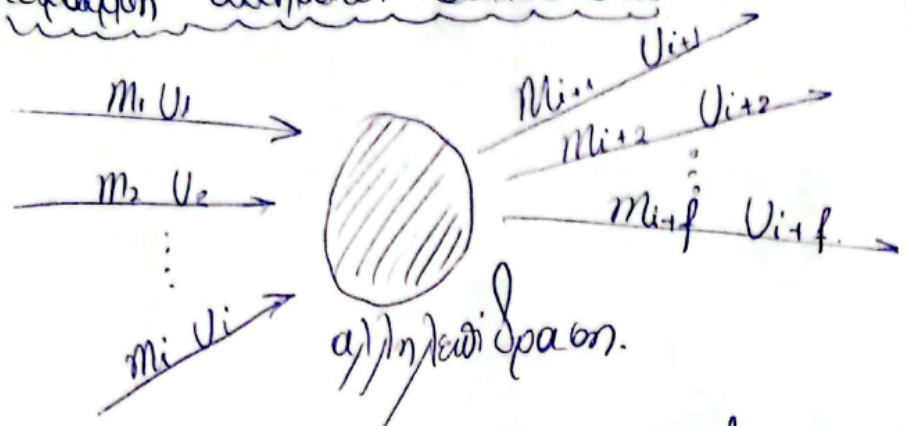 m₁ U₁
m₂ U₂
⋮
mi Ui
mi+1 Ui+1
mi+2 Ui+2
⋮
mi+f Ui+f.
αλληλεπίδραση.